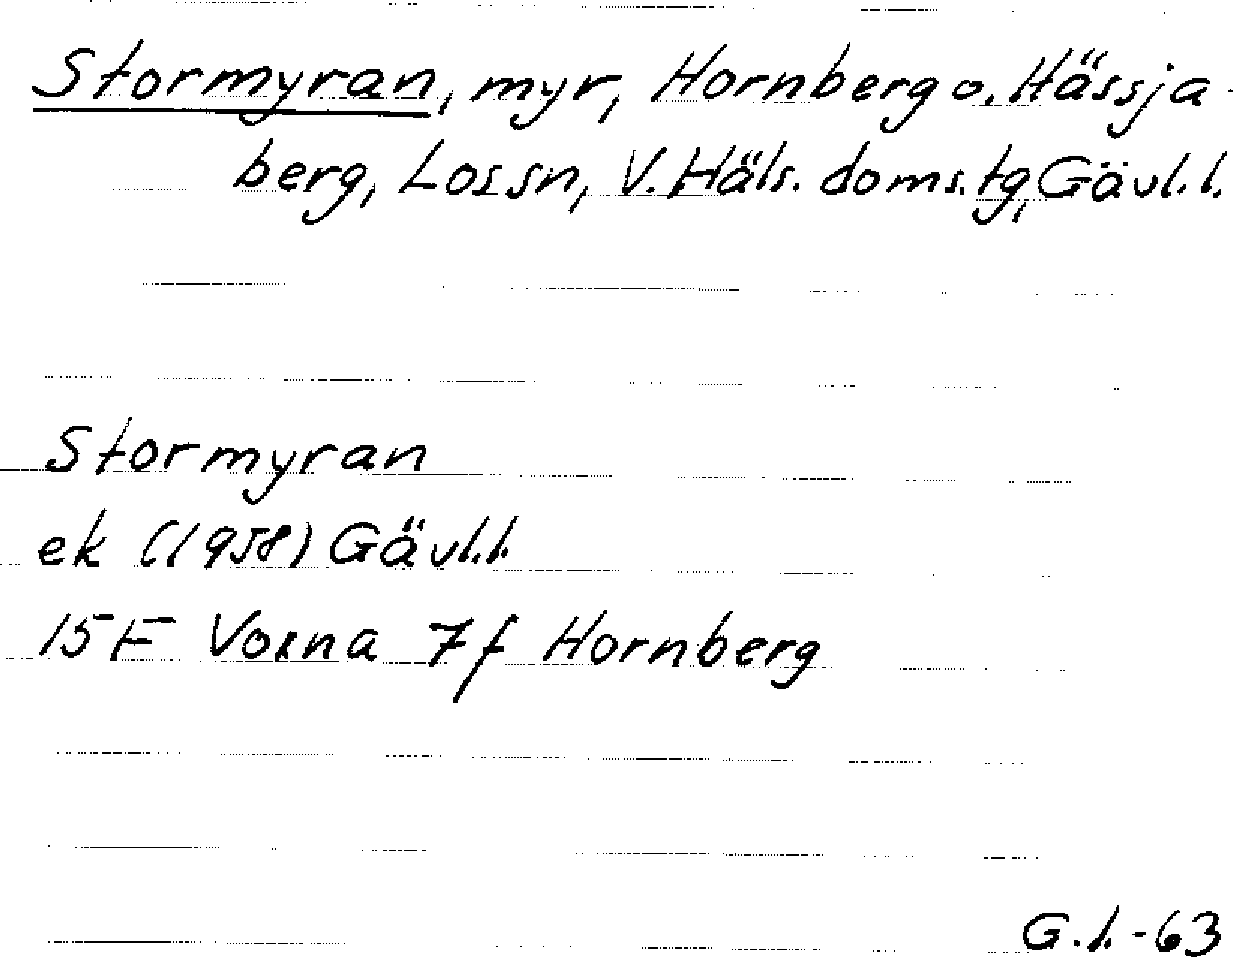 Stormyran, myr, Hornberg o. Hässja-
berg, Los sn, V. Häls. doms. tg, Gävl. l.
Stormyran
ek (1958) Gävl. l.
15F Voxna 7f Hornberg
G. l. -63